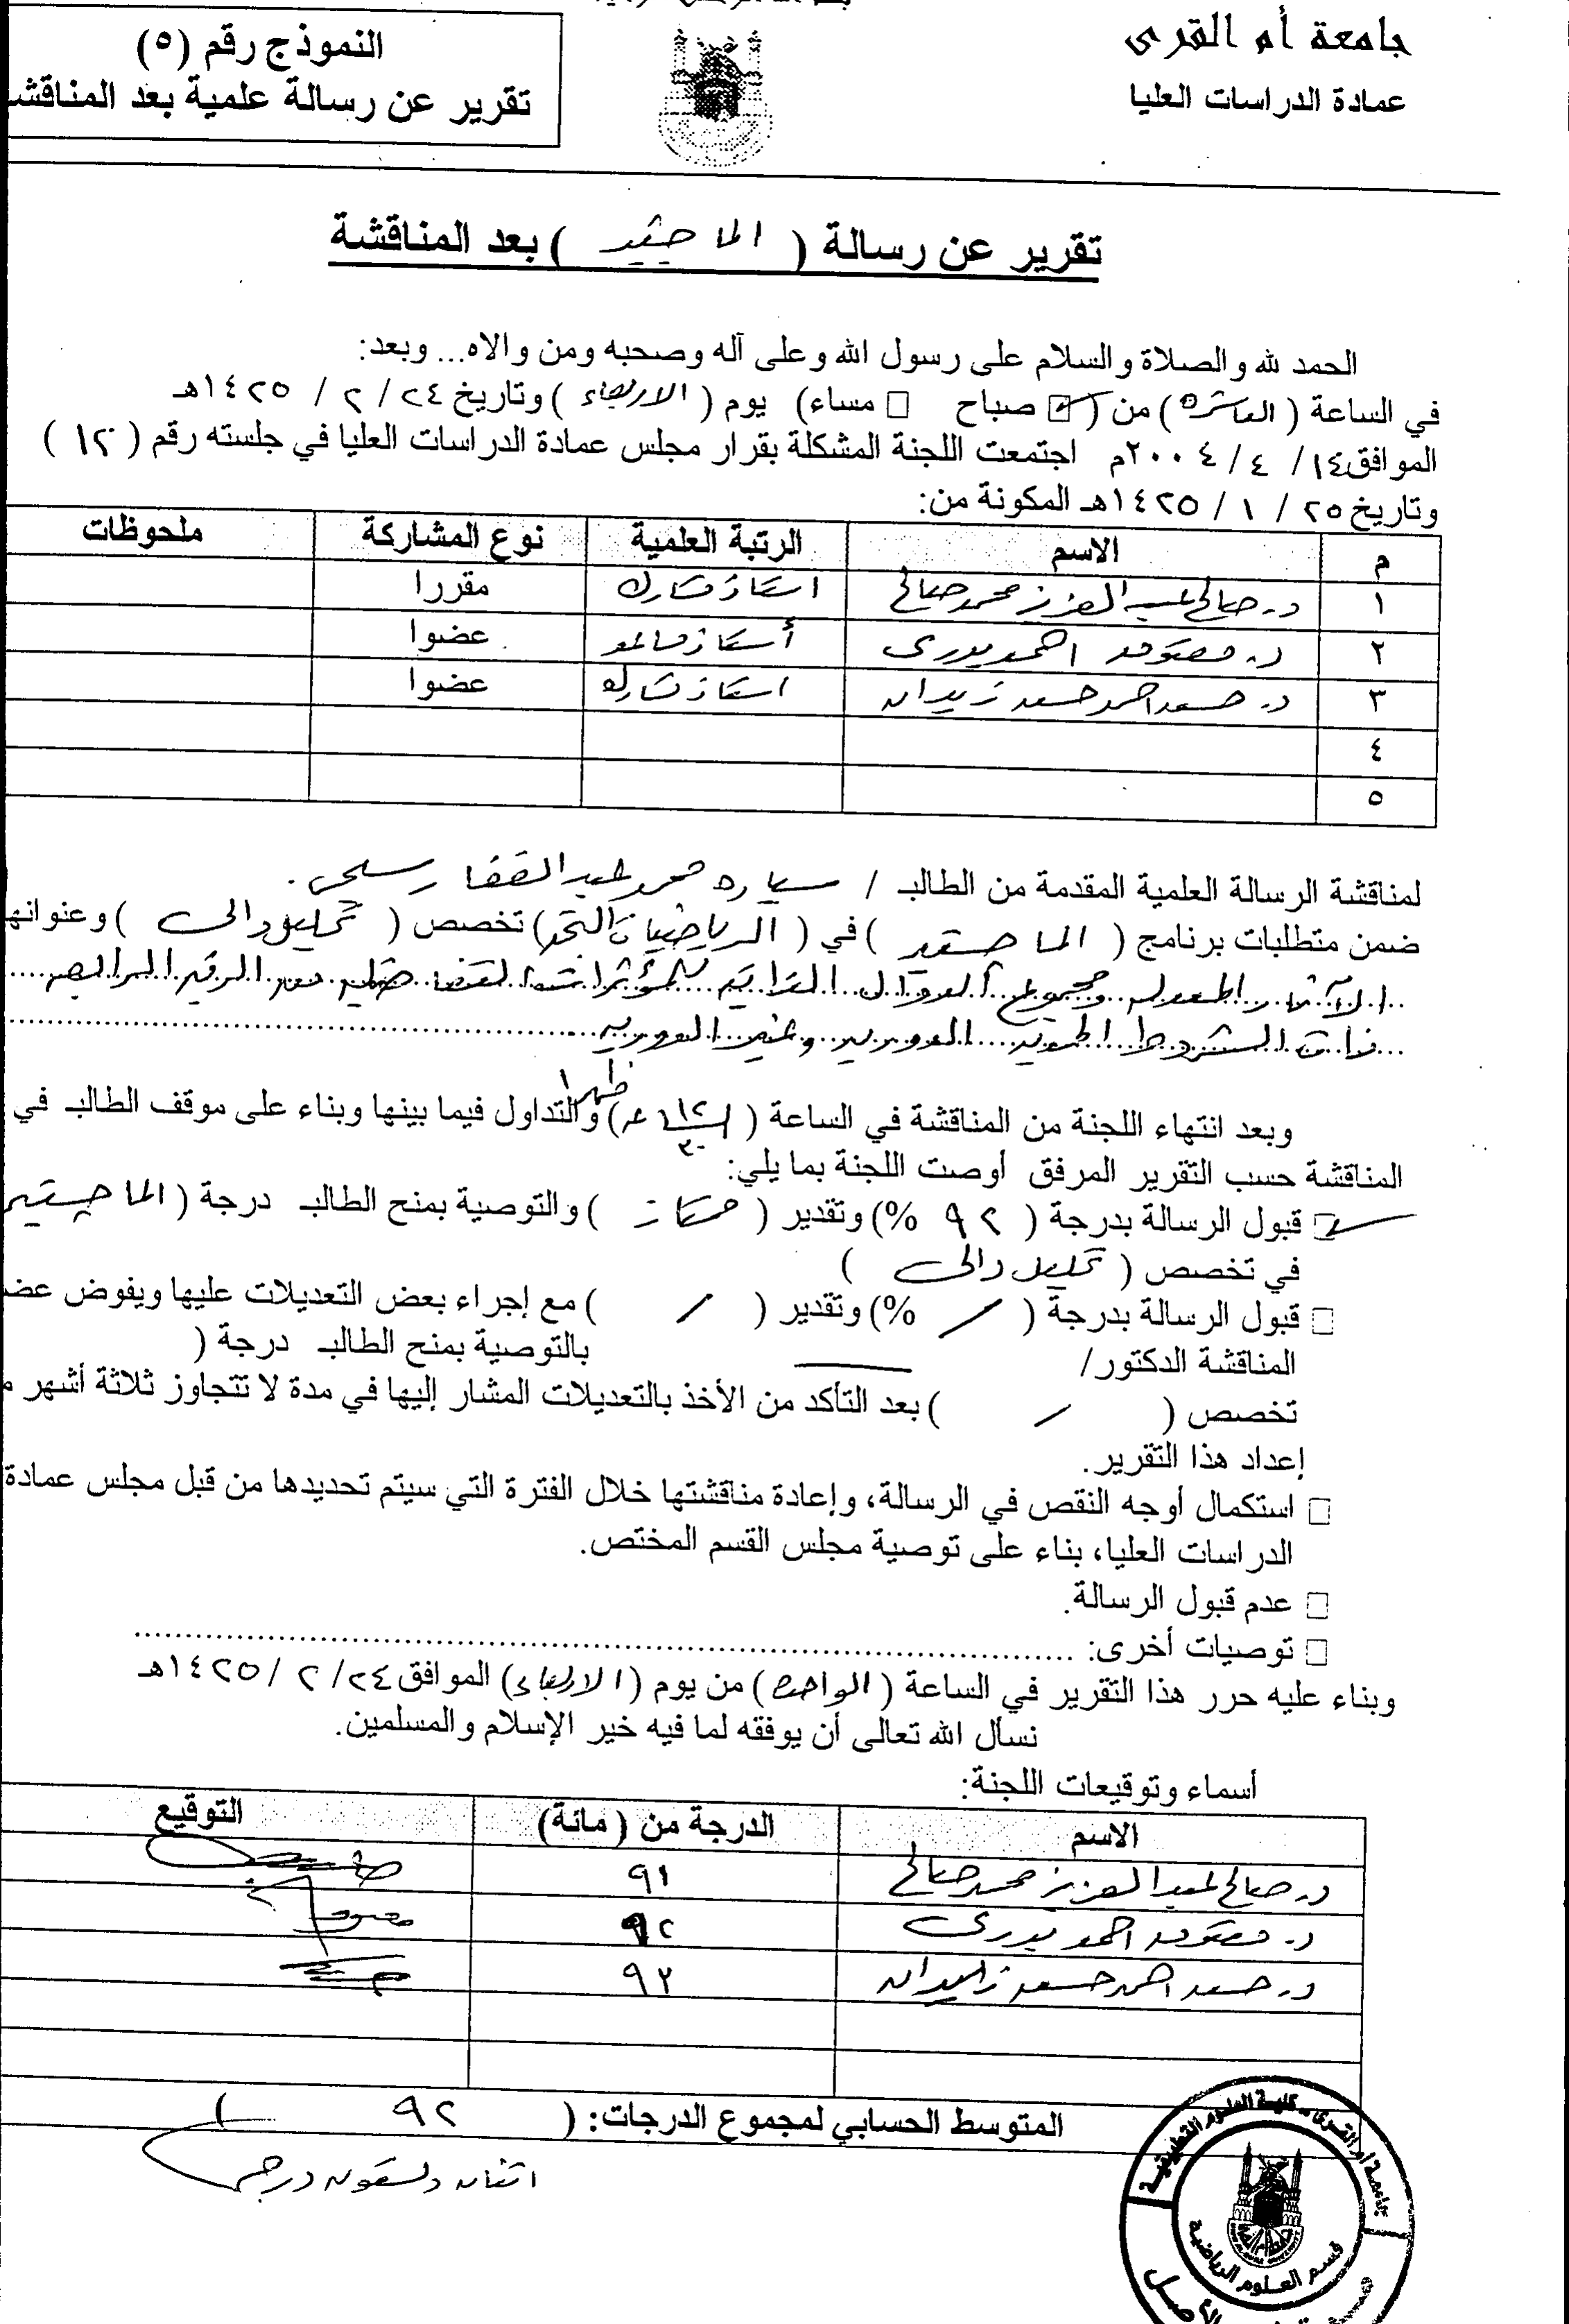 جامعة أم القرى
عمادة الدراسات العليا
النموذج رقم (٥)
تقرير عن رسالة علمية بعد المناقشة
تقرير عن رسالة ( الماجستير ) بعد المناقشة
الحمد لله والصلاة والسلام على رسول الله وعلى آله وصحبه ومن والاه... وبعد:
في الساعة ( العاشرة ) من ( ☑ صباح □ مساء) يوم ( الاربعاء ) وتاريخ ٢٤ / ٢ / ١٤٢٥هـ
الموافق ١٤ / ٤ / ٢٠٠٤م اجتمعت اللجنة المشكلة بقرار مجلس عمادة الدراسات العليا في جلسته رقم ( ١٢ )
وتاريخ ٢٥ / ١ / ١٤٢٥هـ المكونة من:
م الاسم الرتبة العلمية نوع المشاركة ملحوظات
١ د. صالح عبد العزيز محمد صالح استاذ مشارك مقررا
٢ د. احمد بدرى أستاذ مساعد عضوا
٣ د. حسن احمد حسن زيدان استاذ مشارك عضوا
٤
٥
لمناقشة الرسالة العلمية المقدمة من الطالب / محمد عبد الغفار
ضمن متطلبات برنامج ( الماجستير ) في ( الرياضيات البحتة ) تخصص ( تحليل دالى ) وعنوانها
الآثار ومجموع الدوال الذاتية لمؤثرات تفاضلية من الرتبة الرابعة
ذات الشروط الحدية الدورية وغير الدورية
وبعد انتهاء اللجنة من المناقشة في الساعة ( ١٢ ٣٠ ظهرا ) والتداول فيما بينها وبناء على موقف الطالب في
المناقشة حسب التقرير المرفق أوصت اللجنة بما يلي:
☑ قبول الرسالة بدرجة ( ٩٢ %) وتقدير ( ممتاز ) والتوصية بمنح الطالب درجة ( الماجستير
في تخصص ( تحليل دالى )
□ قبول الرسالة بدرجة ( / %) وتقدير ( / ) مع إجراء بعض التعديلات عليها ويفوض عضو
المناقشة الدكتور/ ــــــ بالتوصية بمنح الطالب درجة (
تخصص ( / ) بعد التأكد من الأخذ بالتعديلات المشار إليها في مدة لا تتجاوز ثلاثة أشهر م
إعداد هذا التقرير.
□ استكمال أوجه النقص في الرسالة، وإعادة مناقشتها خلال الفترة التي سيتم تحديدها من قبل مجلس عمادة
الدراسات العليا، بناء على توصية مجلس القسم المختص.
□ عدم قبول الرسالة.
□ توصيات أخرى: ........................
وبناء عليه حرر هذا التقرير في الساعة ( الواحدة ) من يوم ( الاربعاء ) الموافق ٢٤ / ٢ / ١٤٢٥هـ
نسأل الله تعالى أن يوفقه لما فيه خير الإسلام والمسلمين.
أسماء وتوقيعات اللجنة:
الاسم الدرجة من ( مائة) التوقيع
د. صالح عبد العزيز محمد صالح ٩١
د. احمد بدرى ٩٢
د. حسن احمد حسن زيدان ٩٣
المتوسط الحسابي لمجموع الدرجات: ( ٩٢ )
اثنان وتسعون درجة
جامعة أم القرى - كلية العلوم التطبيقية
قسم العلوم الرياضية